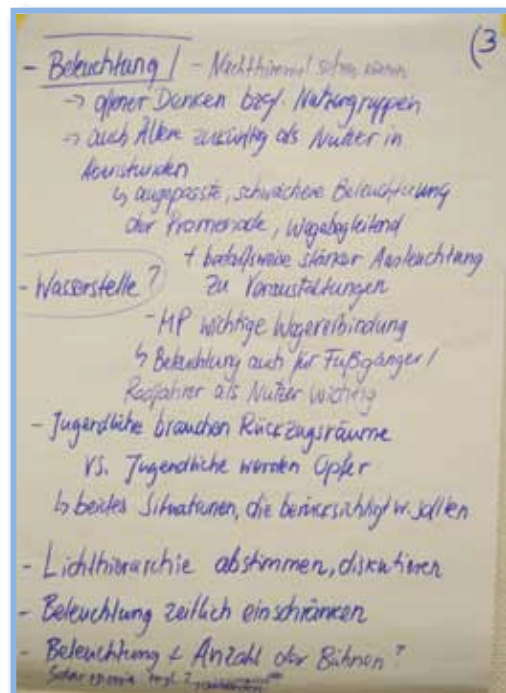 (3
- Beleuchtung / - Nachthimmel sehen können
→ offener Denken bzgl. Nutzergruppen
→ auch Ältere zukünftig als Nutzer in
Abendstunden
↳ angepasste, schwächere Beleuchtung
der Promenade, Wegebegleitend
+ bedarfsweise stärker Ausleuchtung
zu Veranstaltungen
- Wasserstelle?
- MP wichtige Wegeverbindung
↳ Beleuchtung auch für Fußgänger /
Radfahrer als Nutzer wichtig
- Jugendliche brauchen Rückzugsräume
vs. Jugendliche werden Opfer
↳ beides Situationen, die berücksichtigt w. sollten
- Lichthierarchie abstimmen, diskutieren
- Beleuchtung zeitlich einschränken
- Beleuchtung + Anzahl der Bühnen?
Solarenergie mgl.?